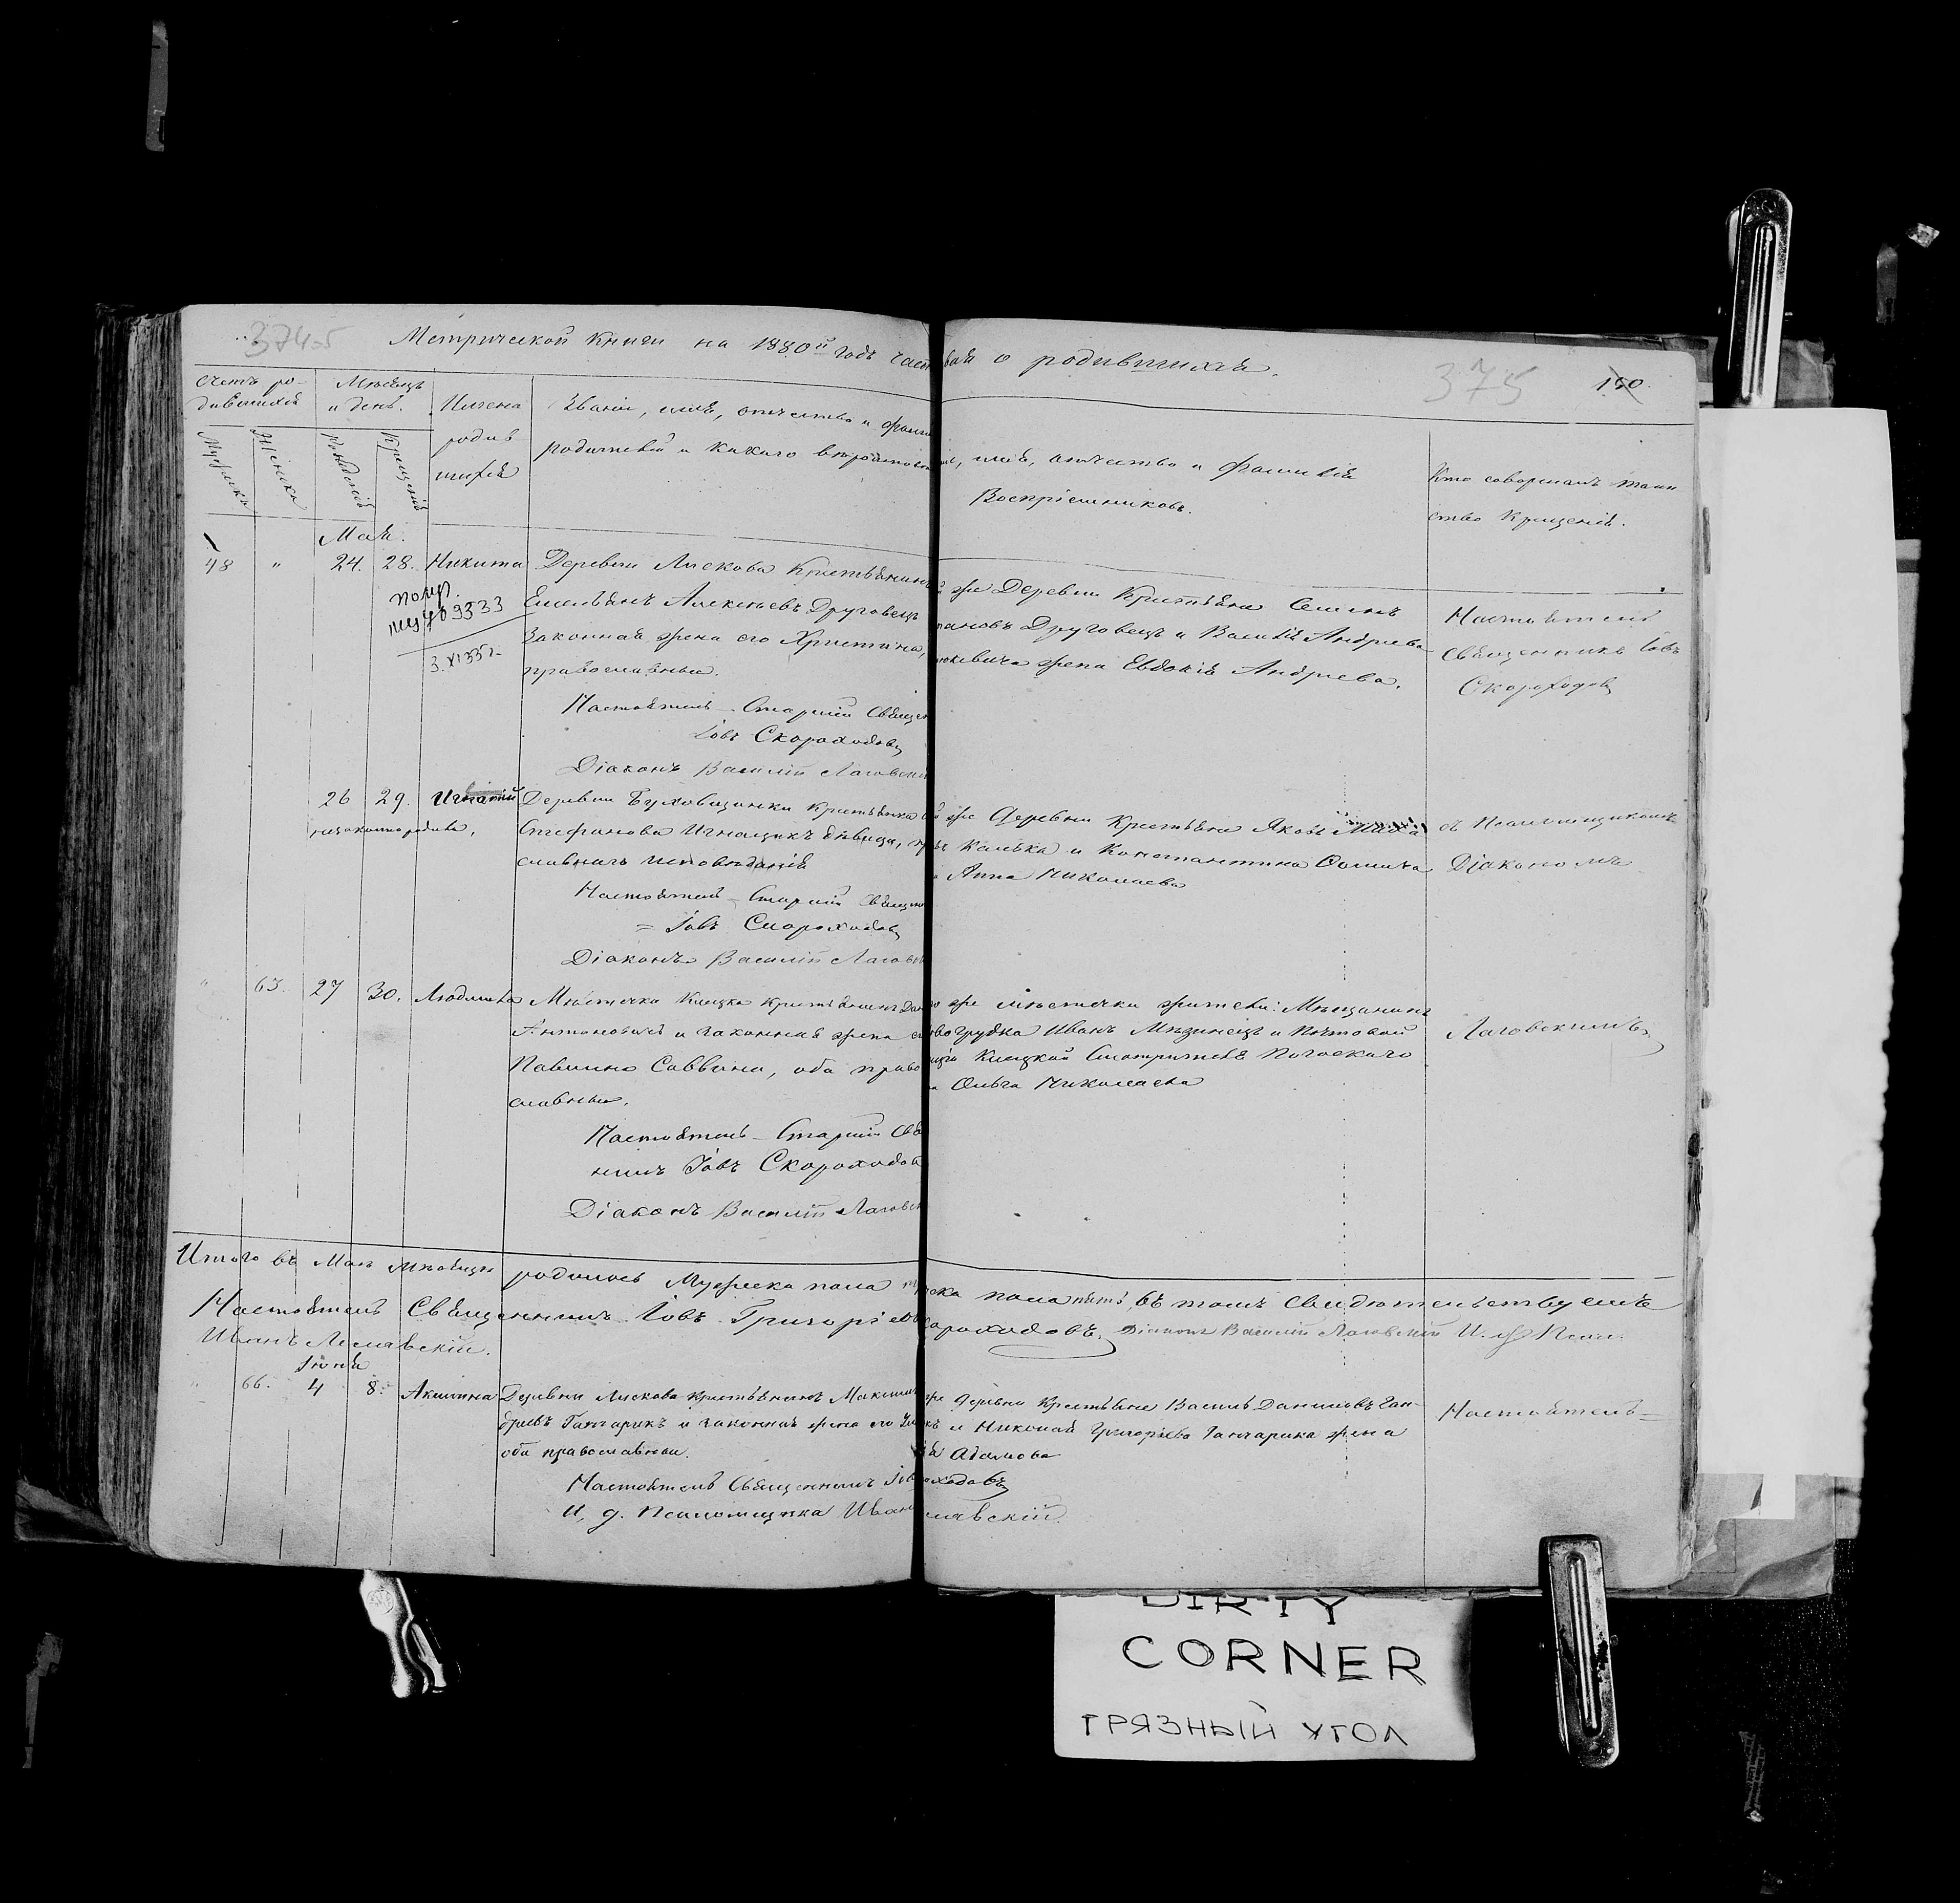 374об
Метрической Книги на 1880й годъ част
вая о родившихся.
375
150
Счетъ ро-
дившихся
Мѣсяцъ
и день.
Имена
родив
шихся
Званіе, имя, отчество и фами
родителей и какого вѣроисповѣ
іе, имя, отчество и фамилія
Воспріемниковъ.
Кто совершалъ таин
ство Крещенія.
Мужеска
Женска
Рожденія
Крещенія
Мая.
48 " 24. 28. Никита
3.XI 33г.
Деревни Лискова Крестьянинъ
Емельянъ Алексѣевъ Друговецъ
Законная жена его Христина,
православныи.
Настоятель - Старшій Священ
Іовъ Скороходовъ
Діаконъ Василій Лаговскій
же Деревни Крестьяне Семенъ
пановъ Друговецъ и Василія Андреева
кевича жена Евдокія Андреева.
Настоятель
Священникъ Іовъ
Скороходовъ
26 29. Игнатій
незаконнорожден,
Деревни Буховщинки Крестьянка
Стефанова Игнащикъ дѣвица, пр
славнаго исповѣданія
Настоятель - Старшій Священ
= Іовъ Скороходовъ
Діаконъ Василій Лаговск
же Деревни Крестьяне Яковъ
Калѣка и Константина Ѳомича
Анна Николаева
съ Псаломщикомъ
Діакономъ
" 65 27 30. Людмила
Мѣстечка Клецка крестьянинъ Дан
Антоновичъ и законная жена е
Павлина Саввина, оба право
славныи.
Настоятель - Старшій Свя
никъ Іовъ Скороходов
Діаконъ Василій Лаговск
же мѣстечка жители: Мѣщанинъ
Иванъ Мѣзинецъ и Почтовой
Клецкой Смотрителя
Ольга Николаева
Лаговскимъ
Итого въ Маѣ Мѣсяцѣ родилось Мужеска пола
ска пола пять, въ томъ свидѣтельствуемъ
Настоятель Священникъ Іовъ Григоріев
ороходовъ. Діаконъ Василій Лаговскій И. д. Псал.
Иванъ Леславскій.
Іюня
" 66. 4 8. Акилина
Деревни Лискова крестьянинъ Максим
Ганчарикъ и законная жена его
оба православныи.
Настоятель Священникъ Іов
И. д. Псаломщика Иван
же деревни Крестьяне Василь Даниловъ Ган-
къ и Николая Григоріева Ганчарика жена
Адамова
оходовъ
лавскій
Настоятель =
DIRTY
CORNER
ГРЯЗНЫЙ УГОЛ